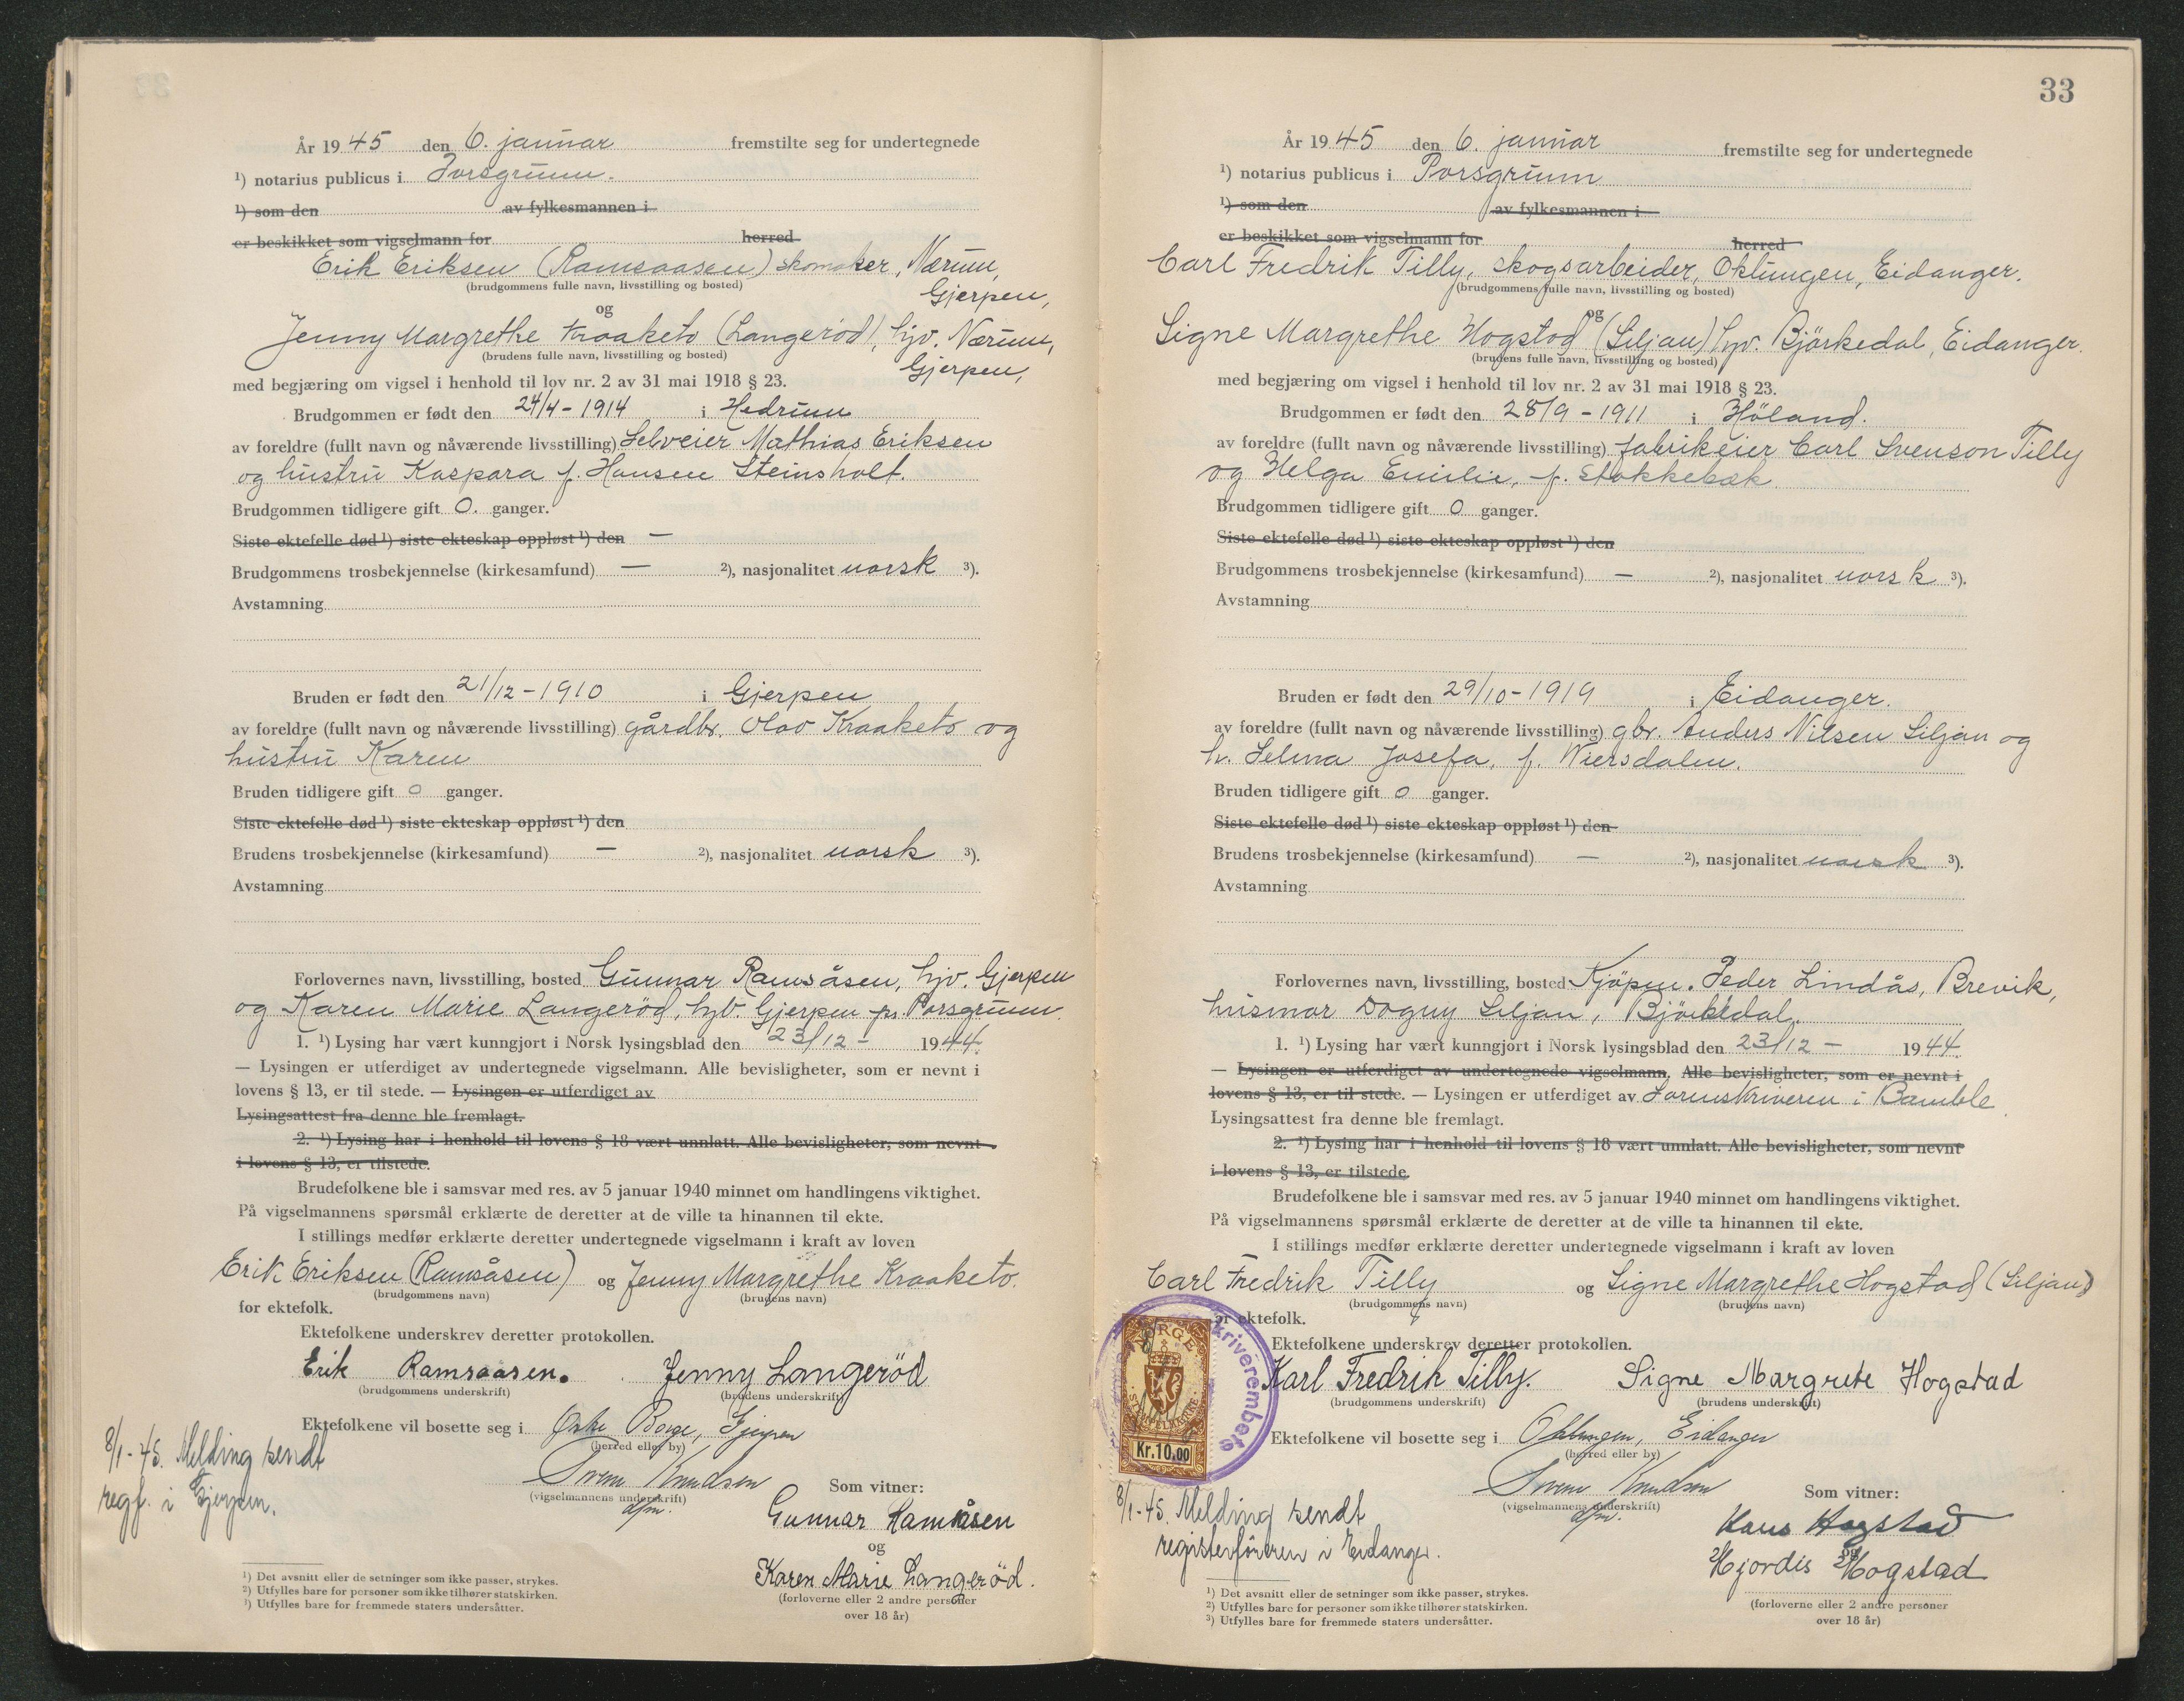 År 1945 den 6. januar fremstilte seg for undertegnede
¹) notarius publicus i Porsgrunn.
¹) som den av fylkesmannen i
er beskikket som vigselmann for herred
Erik Eriksen (Ramsaasen) skomaker, Nærum,
(brudgommens fulle navn, livsstilling og bosted)
Gjerpen,
og
Jenny Margrethe Kraaketo (Langerød), hjv. Nærum,
(brudens fulle navn, livsstilling og bosted)
Gjerpen,
med begjæring om vigsel i henhold til lov nr. 2 av 31 mai 1918 § 23.
Brudgommen er født den 24/4 - 1914 i Hedrum
av foreldre (fullt navn og nåværende livsstilling) Selveier Mathias Eriksen
og hustru Kaspara f. Hansen Steinsholt.
Brudgommen tidligere gift 0. ganger.
Siste ektefelle død ¹) siste ekteskap oppløst ¹) den —
Brudgommens trosbekjennelse (kirkesamfund) — ²), nasjonalitet norsk ³).
Avstamning
Bruden er født den 21/12 - 1910 i Gjerpen
av foreldre (fullt navn og nåværende livsstilling) gårdbr. Olav Kraaketo og
hustru Karen
Bruden tidligere gift 0 ganger.
Siste ektefelle død ¹) siste ekteskap oppløst ¹) den
Brudens trosbekjennelse (kirkesamfund) — ²), nasjonalitet norsk ³).
Avstamning
Forlovernes navn, livsstilling, bosted Gunnar Ramsåsen, hjv. Gjerpen
og Karen Marie Langeröd, hjv. Gjerpen pr. Porsgrunn.
1. ¹) Lysing har vært kunngjort i Norsk lysingsblad den 23/12 - 1944.
— Lysingen er utferdiget av undertegnede vigselmann. Alle bevisligheter, som er nevnt i
lovens § 13, er til stede. — Lysingen er utferdiget av
Lysingsattest fra denne ble fremlagt.
2. ¹) Lysing har i henhold til lovens § 18 vært unnlatt. Alle bevisligheter, som nevnt
i lovens § 13, er tilstede.
Brudefolkene ble i samsvar med res. av 5 januar 1940 minnet om handlingens viktighet.
På vigselmannens spørsmål erklærte de deretter at de ville ta hinannen til ekte.
I stillings medfør erklærte deretter undertegnede vigselmann i kraft av loven
Erik Eriksen (Ramsåsen) og Jenny Margrethe Kraaketo.
(brudgommens navn) (brudens navn)
for ektefolk.
Ektefolkene underskrev deretter protokollen.
Erik Ramsaasen. Jenny Langeröd
(brudgommens underskrift) (brudens underskrift)
Ektefolkene vil bosette seg i Borge, Gjerpen
(herred eller by)
8/1-45. Melding sendt
regf. i Gjerpen.
Knudsen
(vigselmannens underskrift)
dfm.
Som vitner:
Gunnar Ramsåsen
og
Karen Marie Langeröd.
(forloverne eller 2 andre personer
over 18 år)
¹) Det avsnitt eller de setninger som ikke passer, strykes.
²) Utfylles bare for personer som ikke tilhører statskirken.
³) Utfylles bare for fremmede staters undersåtter.
33
År 1945 den 6. januar fremstilte seg for undertegnede
¹) notarius publicus i Porsgrunn
¹) som den av fylkesmannen i
er beskikket som vigselmann for herred
Carl Fredrik Tilly, skogsarbeider, Oklungen, Eidanger.
(brudgommens fulle navn, livsstilling og bosted)
og
Signe Margrethe Hogstad (Siljan) hjv. Björkedal, Eidanger.
(brudens fulle navn, livsstilling og bosted)
med begjæring om vigsel i henhold til lov nr. 2 av 31 mai 1918 § 23.
Brudgommen er født den 28/9 - 1911 i Höland.
av foreldre (fullt navn og nåværende livsstilling) fabrikeier Carl Svenson Tilly
og Helga Emilie, f. Stokkebæk.
Brudgommen tidligere gift 0 ganger.
Siste ektefelle død ¹) siste ekteskap oppløst ¹) den
Brudgommens trosbekjennelse (kirkesamfund) — ²), nasjonalitet norsk ³).
Avstamning
Bruden er født den 29/10 - 1919 i Eidanger.
av foreldre (fullt navn og nåværende livsstilling) gbr. Anders Nilsen Siljan og
h. Selma Josefa, f. Wiersdalen.
Bruden tidligere gift 0 ganger.
Siste ektefelle død ¹) siste ekteskap oppløst ¹) den
Brudens trosbekjennelse (kirkesamfund) — ²), nasjonalitet norsk ³).
Avstamning
Forlovernes navn, livsstilling, bosted Kjöpm. Peder Lindås, Brevik,
husmor Dagny Siljan, Björkedal.
1. ¹) Lysing har vært kunngjort i Norsk lysingsblad den 23/12 - 1944.
— Lysingen er utferdiget av undertegnede vigselmann. Alle bevisligheter, som er nevnt i
lovens § 13, er til stede. — Lysingen er utferdiget av Sorenskriveren i Bamble.
Lysingsattest fra denne ble fremlagt.
2. ¹) Lysing har i henhold til lovens § 18 vært unnlatt. Alle bevisligheter, som nevnt
i lovens § 13, er tilstede.
Brudefolkene ble i samsvar med res. av 5 januar 1940 minnet om handlingens viktighet.
På vigselmannens spørsmål erklærte de deretter at de ville ta hinannen til ekte.
I stillings medfør erklærte deretter undertegnede vigselmann i kraft av loven
Carl Fredrik Tilly og Signe Margrethe Hogstad (Siljan)
(brudgommens navn) (brudens navn)
for ektefolk.
Ektefolkene underskrev deretter protokollen.
Karl Fredrik Tilly. Signe Margrete Hogstad
(brudgommens underskrift) (brudens underskrift)
NORGE
STEMPELMERKE
Kr.10.00
skriverembete
Ektefolkene vil bosette seg i Oklungen, Eidanger
(herred eller by)
8/1-45. Melding sendt
registerföreren i Eidanger.
Knudsen
(vigselmannens underskrift)
dfm.
Som vitner:
Hans Hogstad
og
Hjordis Hogstad
(forloverne eller 2 andre personer
over 18 år)
¹) Det avsnitt eller de setninger som ikke passer, strykes.
²) Utfylles bare for personer som ikke tilhører statskirken.
³) Utfylles bare for fremmede staters undersåtter.